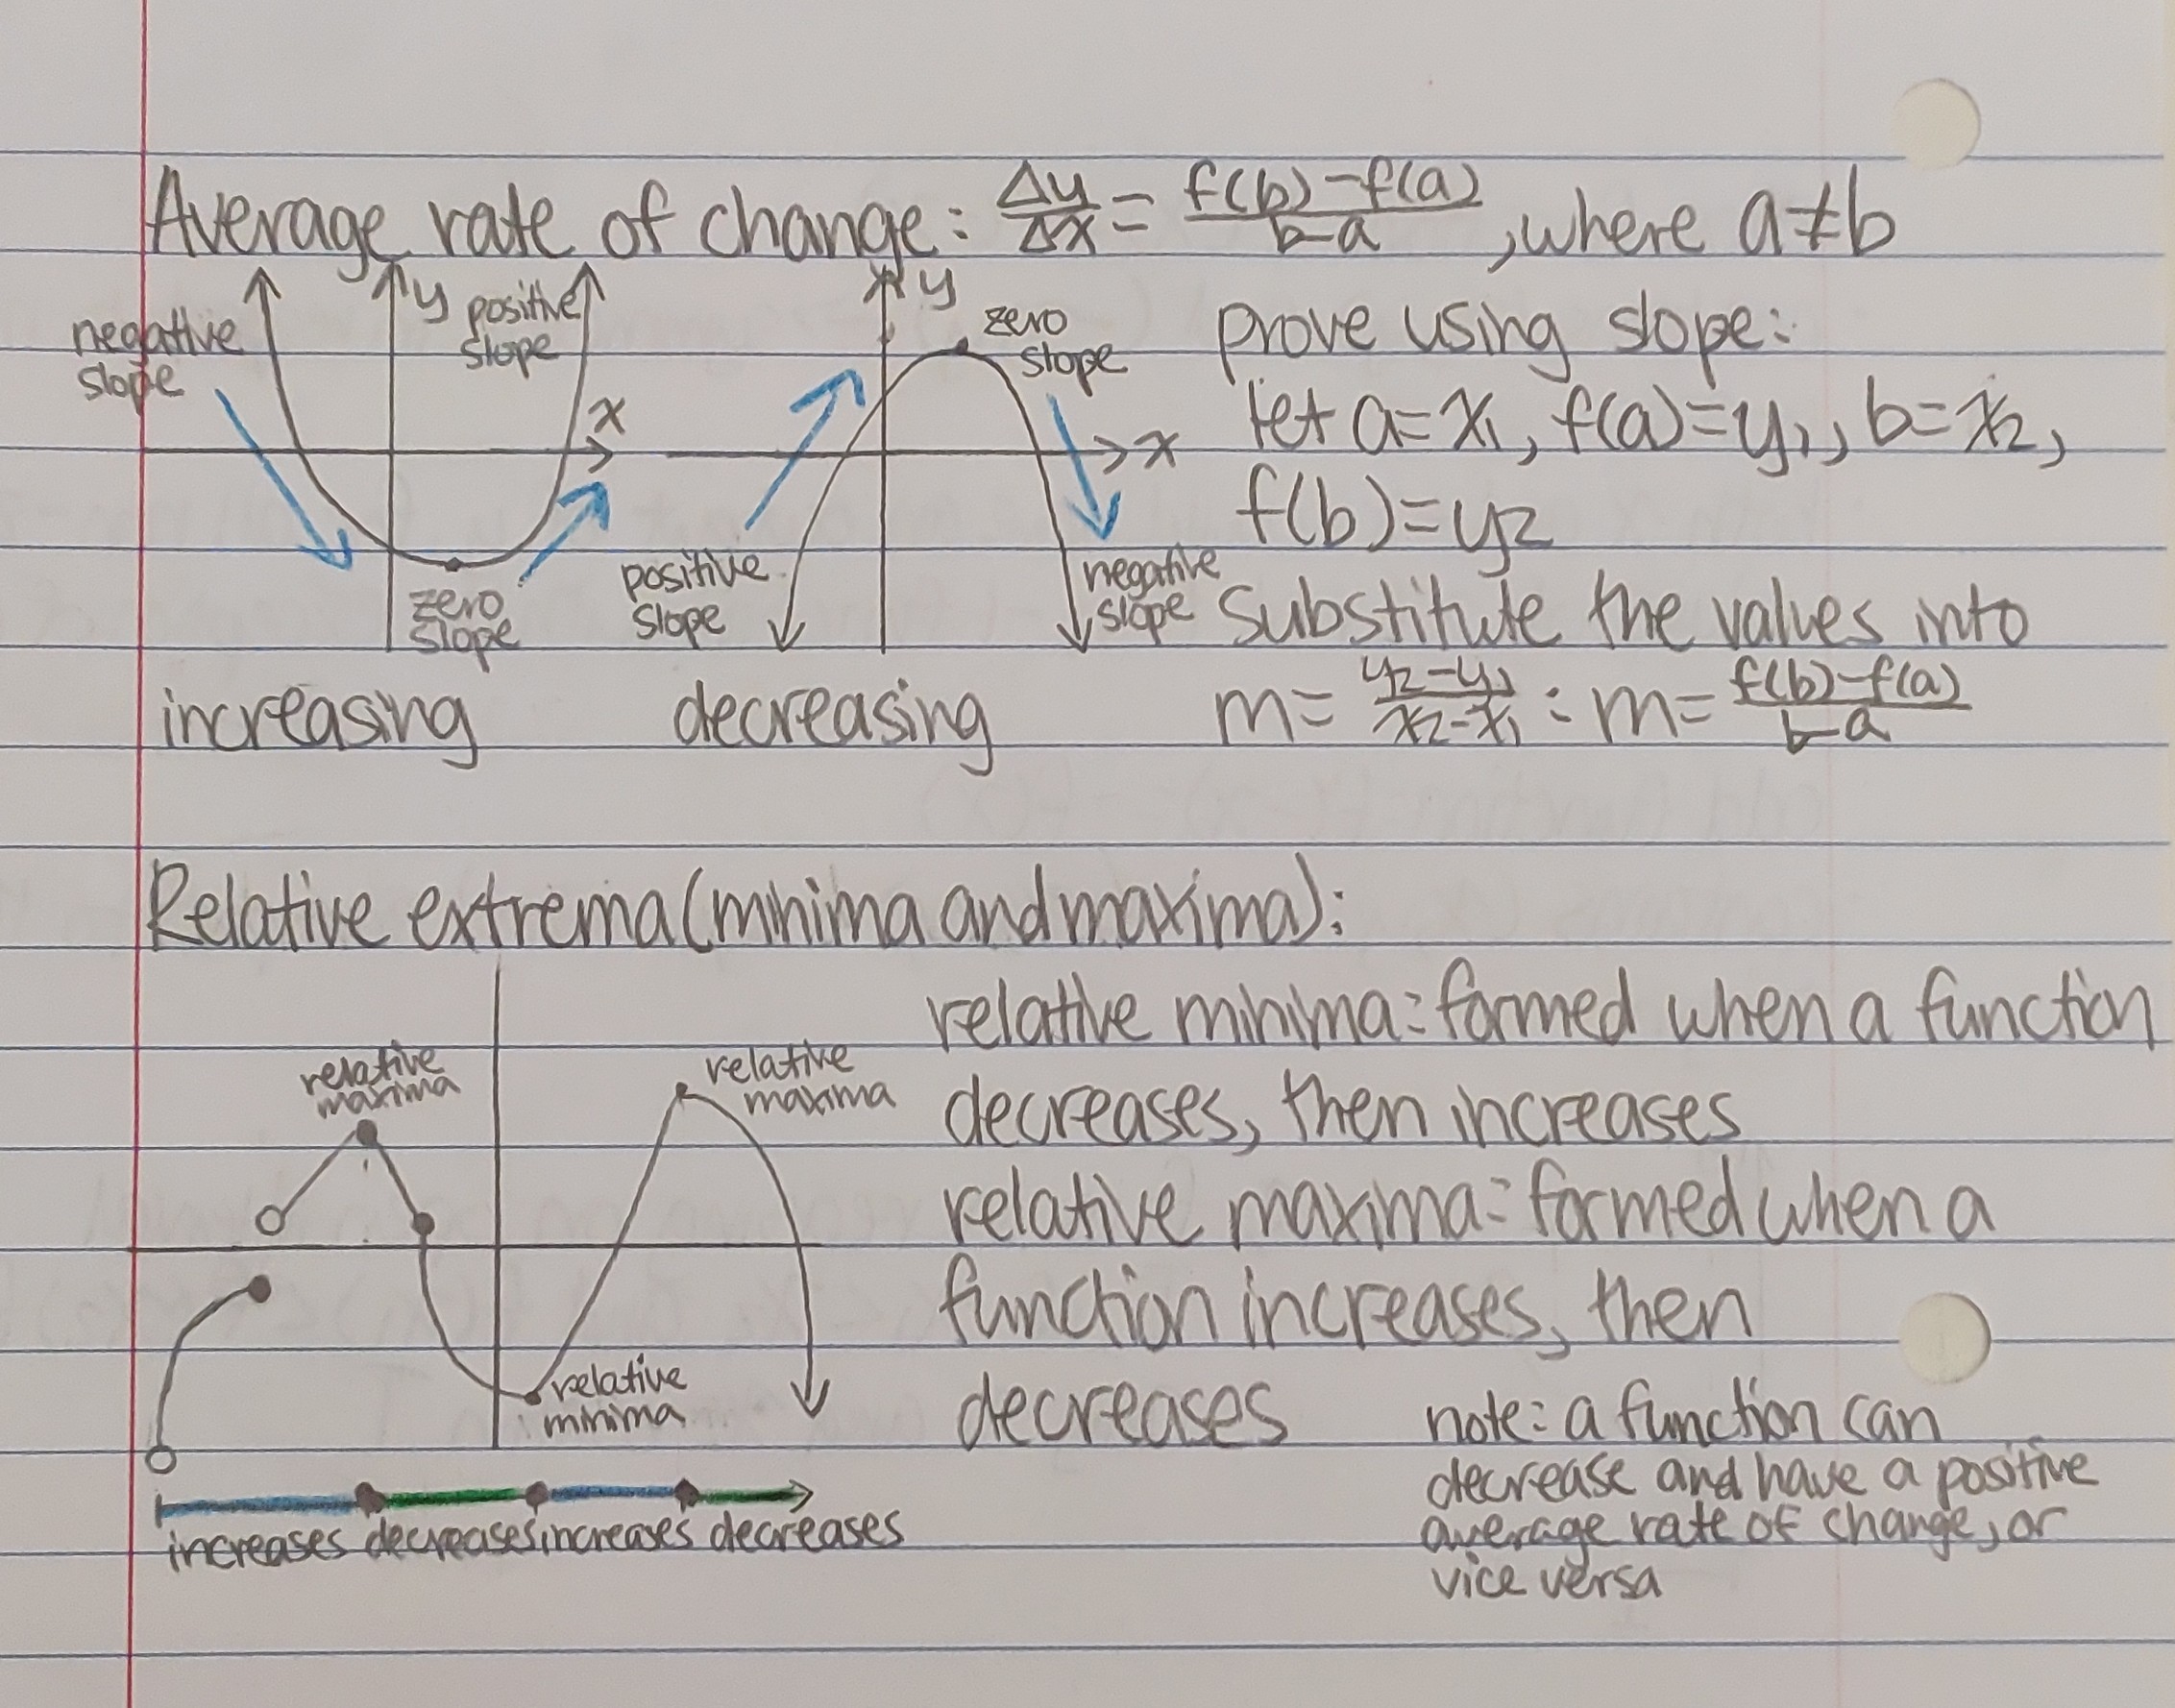 Average rate of change: Δy/Δx = f(b)-f(a)/b-a, where a≠b
negative
slope
y
positive
slope
x
zero
slope
y
zero
slope
x
positive
slope
negative
slope
increasing
decreasing
prove using slope:
let a=x₁, f(a)=y₁, b=x₂,
f(b)=y₂
substitute the values into
m= y₂-y₁/x₂-x₁ : m= f(b)-f(a)/b-a
Relative extrema (minima and maxima):
relative
maxima
relative
maxima
relative
minima
increases decreases increases decreases
relative minima: formed when a function
decreases, then increases
relative maxima: formed when a
function increases, then
decreases
note: a function can
decrease and have a positive
average rate of change, or
vice versa